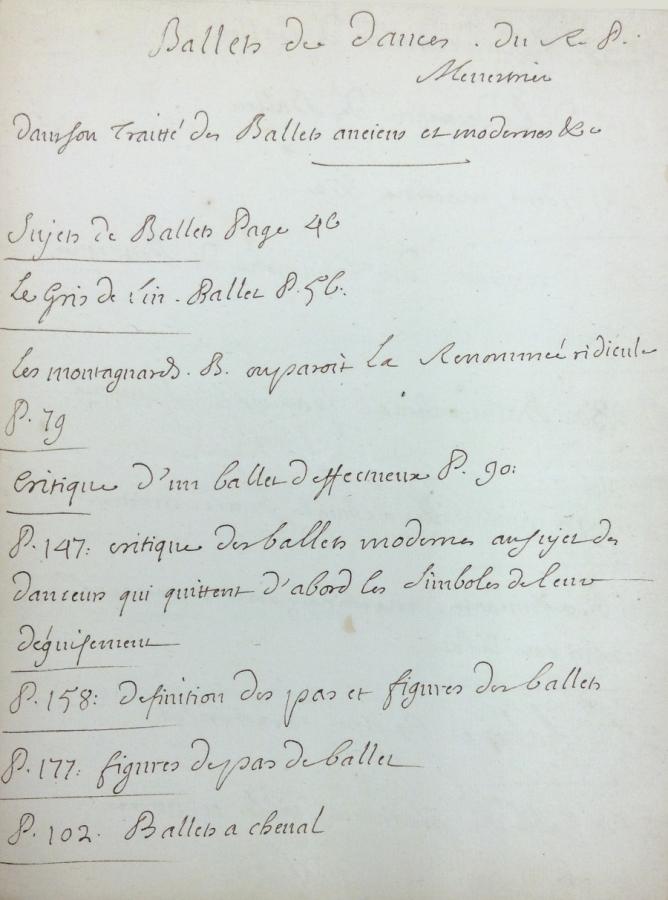 Ballets de dances. du R. P.
Menestrier
dans son Traitté des Ballets anciens et modernes &c
Sujets de Ballets Page 46
Le Gris de lin. Ballet P. 56.
Les montagnards. B. ou paroit La Renommeé ridicule
P. 79
Critique d'un ballet deffectueux P. 90:
P. 147: critique des ballets modernes au sujet des
danceurs qui quittent d'abord les simboles de leur
déguisement
P. 158: definition des pas et figures des ballets
P. 177: figures de pas de ballet
P. 102. Ballets a cheual